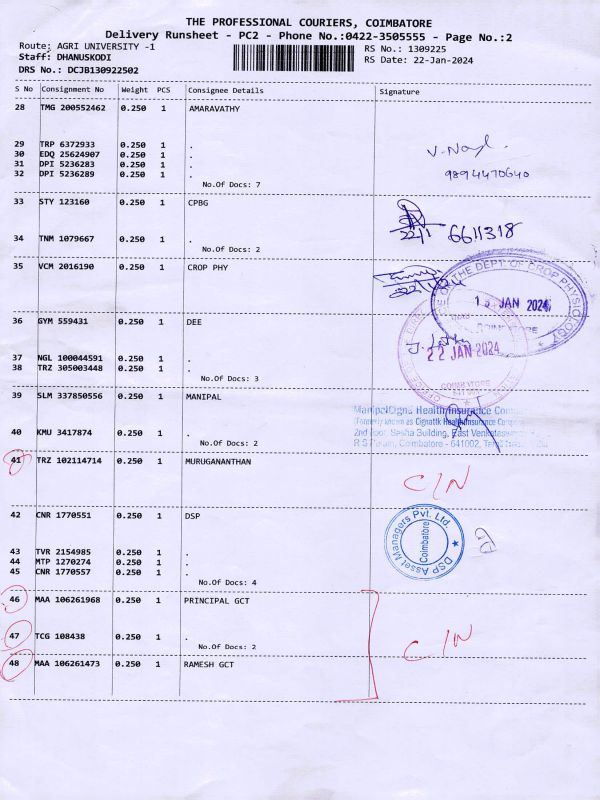 THE PROFESSIONAL COURIERS, COIMBATORE
Delivery Runsheet - PC2 - Phone No.:0422-3505555 - Page No.:2
Route: AGRI UNIVERSITY -1 RS No.: 1309225
Staff: DHANUSKODI RS Date: 22-Jan-2024
DRS No.: DCJB130922502
S No Consignment No Weight PCS Consignee Details Signature
28 TMG 200552462 0.250 1 AMARAVATHY
29 TRP 6372933 0.250 1 .
30 EDQ 25624907 0.250 1 .
31 DPI 5236283 0.250 1 .
32 DPI 5236289 0.250 1 .
9894470640
No.Of Docs: 7
33 STY 123160 0.250 1 CPBG
22/1 6611318
34 TNM 1079667 0.250 1 .
No.Of Docs: 2
35 VCM 2016190 0.250 1 CROP PHY
OF THE DEPT OF CROP PHYSIOLOGY
JAN 2024
36 GYM 559431 0.250 1 DEE
22 JAN 2024
37 NGL 100044591 0.250 1 .
38 TRZ 305003448 0.250 1 .
No.Of Docs: 3
COIMBATORE
39 SLM 337850556 0.250 1 MANIPAL
ManipalCigna Health Insurance
(Formerly known as Cignattk Health Insurance
40 KMU 3417874 0.250 1 .
2nd Floor, Building, East
No.Of Docs: 2
Coimbatore - 641002,
41 TRZ 102114714 0.250 1 MURUGANANTHAN
C/N
42 CNR 1770551 0.250 1 DSP
DSP Asset Managers Pvt. Ltd.
Coimbatore
43 TVR 2154985 0.250 1 .
44 MTP 1270274 0.250 1 .
45 CNR 1770557 0.250 1 .
No.Of Docs: 4
46 MAA 106261968 0.250 1 PRINCIPAL GCT
47 TCG 108438 0.250 1 .
C/N
No.Of Docs: 2
48 MAA 106261473 0.250 1 RAMESH GCT